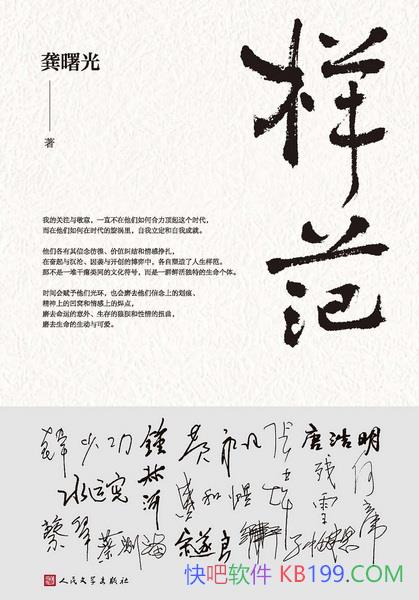 样范
龚曙光
著
我的关注与敬意，一直不在他们如何合力顶起这个时代，
而在他们如何在时代的旋涡里，自我立定和自我成就。
他们各有其信念彷徨、价值纠结和情感挣扎，
在奋起与沉沦、因袭与开创的博弈中，各自塑造了人生样范。
那不是一堆干瘪类同的文化符号，而是一群鲜活独特的生命个体。
时间会赋予他们光环，也会磨去他们信念上的划痕、
精神上的凹窝和情感上的焊点，
磨去命运的意外、生存的狼狈和性情的扭曲，
磨去生命的生动与可爱。
韩少功 鍾叔河 黄永玉 唐浩明
水运宪 盛和煜 残雪
蔡皋 蔡测海
人民文学出版社
快吧软件 KB199.COM